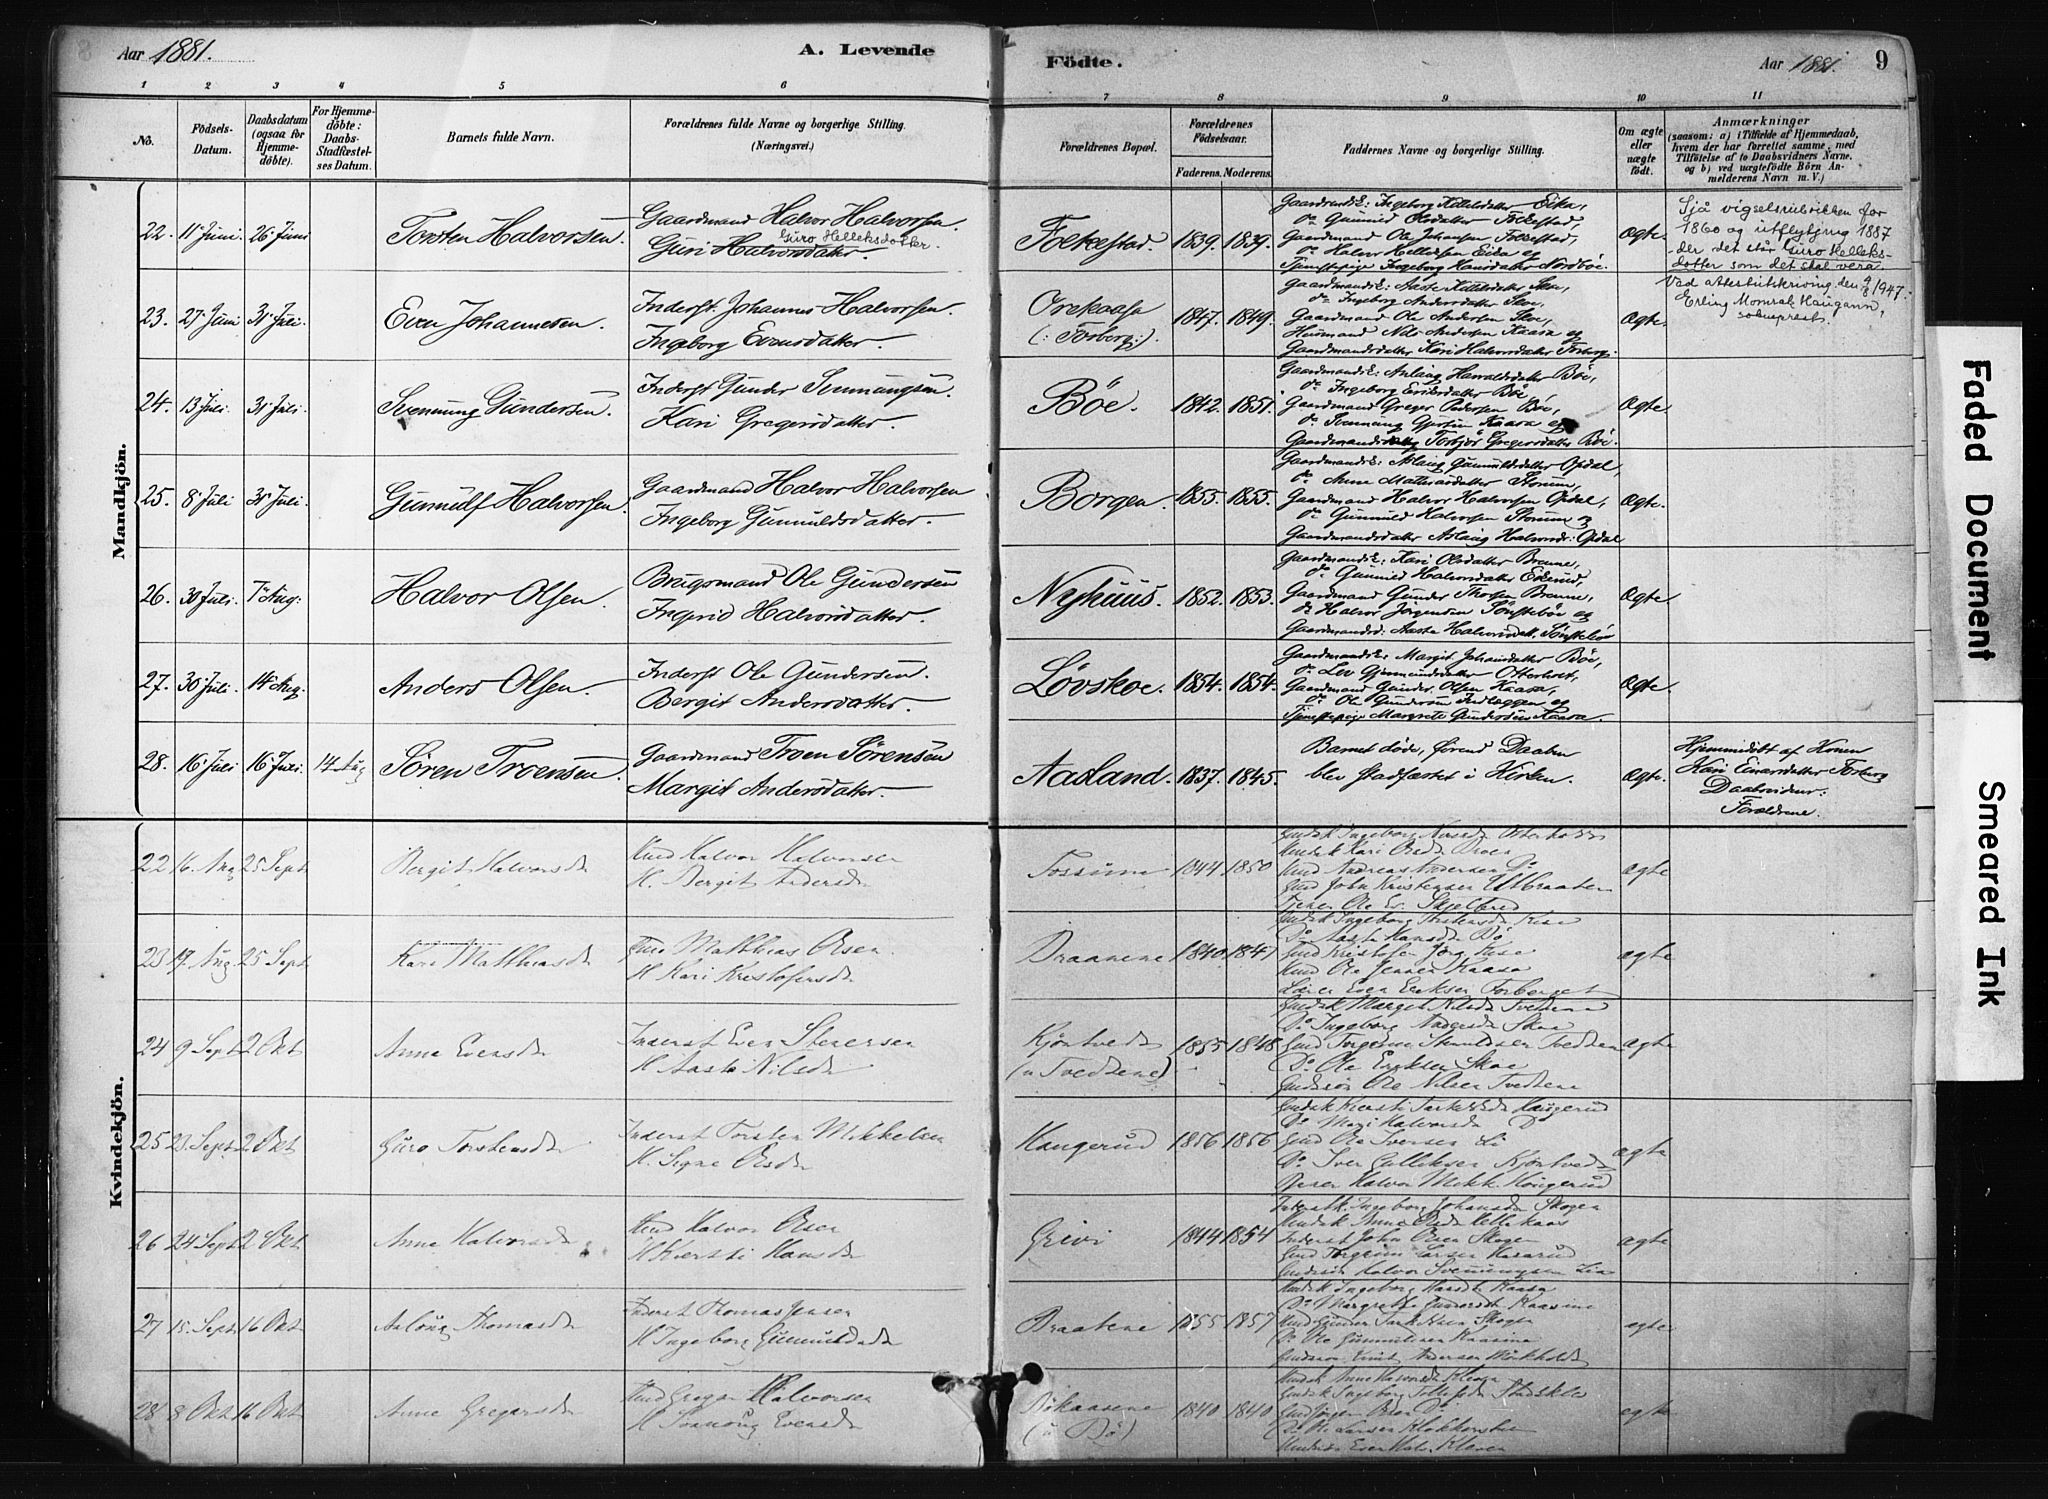 Aar 1881.
A. Levende
Födte.
Aar 1881.
9
1 2 3 4 5 6 7 8 9 10 11
No.
Födsels-
Datum.
Daabsdatum
(ogsaa for
Hjemme-
döbte).
For Hjemme-
döbte:
Daabs-
Stadfæstel-
ses Datum.
Barnets fulde Navn.
Forældrenes fulde Navne og borgerlige Stilling.
(Næringsvei.)
Forældrenes Bopæl.
Forældrenes
Födselsaar.
Faderens. Moderens.
Faddernes Navne og borgerlige Stilling.
Om ægte
eller
uægte
födt.
Anmærkninger
(saasom: a) i Tilfælde af Hjemmedaab,
hvem der har forrettet samme, med
Tilföielse af to Daabsvidners Navne,
og b) ved uægtefödte Börn An-
melderens Navn m. V.)
Mandkjön.
22. 11 Juni. 26 Juni
Torsten Halvorsen.
Gaardmand Halvor Halvorsen.
Guro Helleksdotter
Guri Halvorsdatter.
Folkestad. 1839. 1839.
Gaardmandsk: Ingeborg Kittelsdatter Eika,
do Gunnild Olsdatter Folkestad,
Gaardmand Ole Johansen Folkestad,
do Halvor Helleksen Eika og
Tjenstepige Ingeborg Hansdatter Nordbøe.
Ægte.
Sjå vigselsrubrikken for
1860 og utflytjing 1887
der det står Guro Helleks-
dotter som det skal vera.
Ved attestutskriving den 1947.
Erling Haugann,
sokneprest.
23. 27 Juni 31 Juli.
Even Johannesen.
Inderst Johannes Halvorsen.
Ingeborg Evensdatter.
Orekaasa
(: Forberg:).
1847. 1849.
Gaardmandsk: Aaste Kittelsdatter Skoe,
do Ingeborg Andersdatter Skoe,
Gaardmand Ole Andersen Skoe,
Huusmand Nils Andersen Kaasa og
Gaardmandsdatter Kari Halvorsdatter Forberg.
Ægte.
24. 13 Juli. 31 Juli.
Svennung Gundersen.
Inderst Gunder Svennungsen.
Kari Gregersdatter.
Bøe. 1842. 1851.
Gaardmandsk: Aslaug Harraldsdatter Bøe,
do Ingeborg Eriksdatter Bøe,
Gaardmand Greger Pedersen Bøe,
do Svennung Kaasa og
Gaardmandsdatter Torbjør Gregersdatter Bøe.
Ægte
25. 8 Juli 31 Juli.
Gunnulf Halvorsen.
Gaardmand Halvor Halvorsen
Ingeborg Gunnuldsdatter.
Borgen. 1855. 1855.
Gaardmandsk: Aslaug Gunnuldsdatter Opdal,
do Anne Mathiasdatter Storum,
Gaardmand Halvor Halvorsen Opdal,
do Gunnuld Halvorsen Storum og
Gaardmandsdatter Aslaug Halvorsdr: Opdal
Ægte.
26. 30 Juli. 7 Aug:
Halvor Olsen.
Brugsmand Ole Gundersen
Ingrid Halvorsdatter.
Nyhuus. 1852. 1853.
Gaardmandsk: Kari Olsdatter Brenne,
do Gunnild Halvorsdatter Eikerud,
Gaardmand Gunder Thorsen Brenne,
do Halvor Jørgensen Sønstebøe og
Gaardmandsd: Aaste Halvorsdatt. Sønstebøe
Ægte.
27. 30 Juli. 14 Aug:
Anders Olsen.
Inderst Ole Gundersen.
Bergit Andersdatter.
Løvskoe. 1854. 1854.
Gaardmandsk: Margit Johansdatter Bøe,
do Liv Gjermundsdatter Otterholt,
Gaardmand Gunder Olsen Kaasa,
do Ole Gundersen Indleggen og
Tjenstepige Margrete Gundersdatter Kaasa.
Ægte.
28. 16 Juli 16 Juli. 14 Aug
Søren Troensen.
Gaardmand Troen Sørensen
Margit Andersdatter.
Aasland. 1837. 1845.
Barnet døde, førend Daaben
blev stadfæstet i Kirken.
Ægte.
Hjemmedøbt af Konen
Kari Einarsdatter Forberg
Daabsvidner:
Forældrene.
Kvindekjön.
22 16. Aug 25 Sept
Bergit Halvorsd
Hmd Halvor Halvorsen
H. Bergit Andersd
Fossum 1844 1850
Gmdsk Ingeborg Otterholt
Hmdsk Kari Olsd
Hmd Andreas Andersen
Gmd John Kristensen Ulbraaten
Tjener Ole Ev. Skjelbred
ægte
23 17. Aug 25 Sept
Kari Matthiasd
Hmd Matthias Olsen
H Kari Kristofersd
Braanene 1840 1847
Gmdsk Ingeborg Torstensd Kise
Do Aaste Hansd Bø
Gmd Kristofer Jørg. Kise
Hmd Ole Jensen Kaasa
Lærer Even Eriksen Forberget
ægte
24 9 Sept 2 Okt
Anne Evensd
Inderst Even Steversen
H Aaste Nilsd
Kjøntvedt
(u Tvedtene)
1855 1848
Gmdsk Margit Nilsd Tvedtene
Do Ingeborg Andersd Skoe
Gmd Torgrim Tvedtene
Do Ole Eriksen Skoe
Gmdssøn Ole Nilsen Tvedtene
ægte
25 23. Sept 2 Okt
Guro Torstensd
Inderst Torsten Mikkelsen
H. Signe Olsd
Haugerud 1856 1856
Gmdsk Kjersti Haugerud
Do Mari Halvorsd Do
Gmd Ole Iversen Li
Do Iver Gulliksen Kjøntvedt
Halvor Mikk. Haugerud
ægte
26 24 Sept 2 Okt
Anne Halvorsd
Hmd Halvor Olsen
H Kjersti Hansd
Grivi 1844 1854
Inderstk. Ingeborg Johansd Skogen
Hmdsk Anne Olsd Hellekaas
Inderst John Olsen Skogen
Gmd Torgrim Larsen Kaasrud
Gmdssøn Halvor Svennungsen Lia
ægte
27 15. Sept 16 Okt
Aslaug Thomasd
Inderst Thomas Jensen
H Ingeborg Gunnulds d
Braatene 1855 1857
Hmdsk Ingeborg Hansdt Kaasa
Do Margrethe Kaasine
Hmd Gunder Skogen
Do Ole Gunnulsen Kaasine
Gmdssøn Knut Andersen
ægte
28 8 Okt 16 Okt
Anne Gregersd
Hmd Greger Halvorsen
H Svanaug Evensd
Bøkaasene
(u Bø)
1840 1840
Hmdsk Anne Halvorsd
Gmdsk Ingeborg
Gmd Jørgen Olsen Do
Do N. Larsen
ægte
Faded Document
Smeared Ink